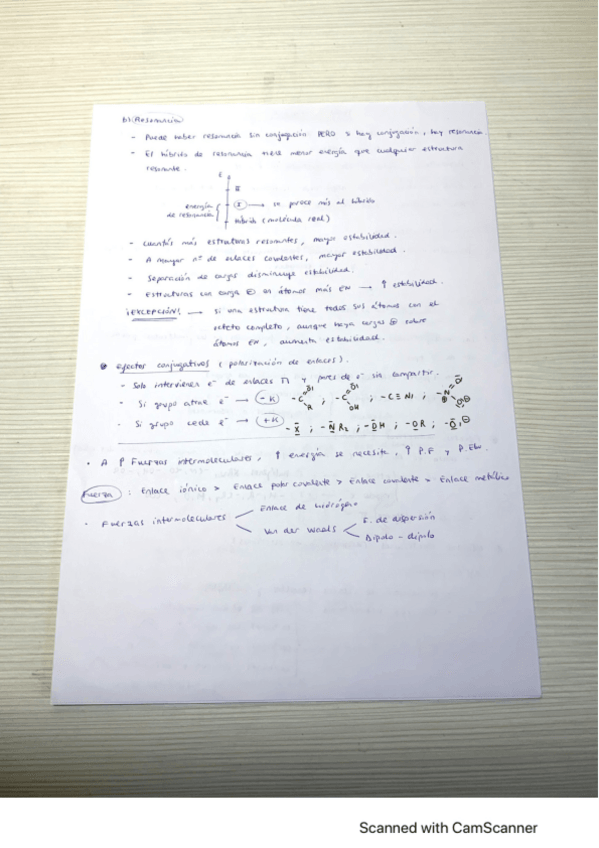 b) Resonancia
- Puede haber resonancia sin conjugación PERO si hay conjugación, hay resonancia
- El híbrido de resonancia tiene menor energía que cualquier estructura
resonante.
E
II
energía
de resonancia
I → se parece más al híbrido
híbrido (molécula real)
- Cuantas más estructuras resonantes, mayor estabilidad.
- A mayor nº de enlaces covalentes, mayor estabilidad.
- Separación de cargas disminuye estabilidad.
- Estructuras con carga ⊖ en átomos más EN → ↑ estabilidad.
¡EXCEPCIÓN! → si una estructura tiene todos sus átomos con el
octeto completo, aunque haya cargas ⊕ sobre
átomos EN, aumenta estabilidad.
efectos conjugativos (polarización de enlaces).
- Solo intervienen e⁻ de enlaces Π y pares de e⁻ sin compartir.
- Si grupo atrae e⁻ → -K -C O R ; -C O OH ; -C≡N ; -N O O
- Si grupo cede e⁻ → +K -X ; -N R₂ ; -OH ; -OR ; -O ⊖
• A ↑ Fuerzas intermoleculares, ↑ energía se necesita, ↑ P.F y P.Eb.
Fuerza : Enlace iónico > Enlace polar covalente > Enlace covalente > Enlace metálico
• Fuerzas intermoleculares
Enlace de hidrógeno
Van der Waals
F. de dispersión
Dipolo - dipolo
Scanned with CamScanner